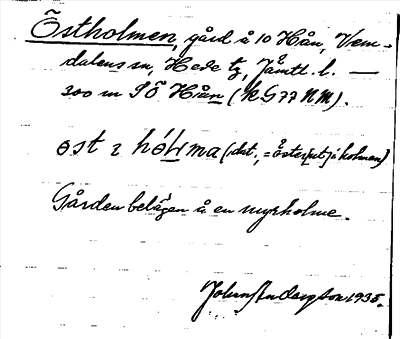 Östholmen, gård å 10 Hån, Vem-
dalens sn, Hede tg, Jämtl. l. —
300 m SÖ Hån (RG77NM).
öst i hólma (dat., = öster[ut] i holmen)
Gården belägen å en myrholme.
John Anderson 1935.